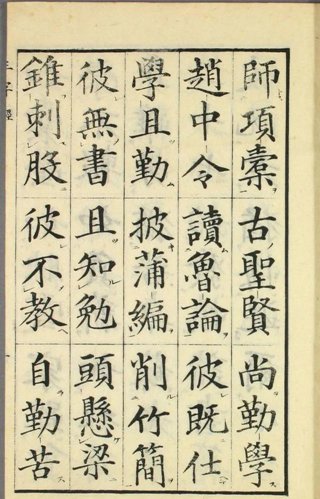 師項橐古聖賢尚勤學
趙中令讀魯論彼既仕
學且勤披蒲編削竹簡
彼無書且知勉頭懸梁
錐刺股彼不教自勤苦